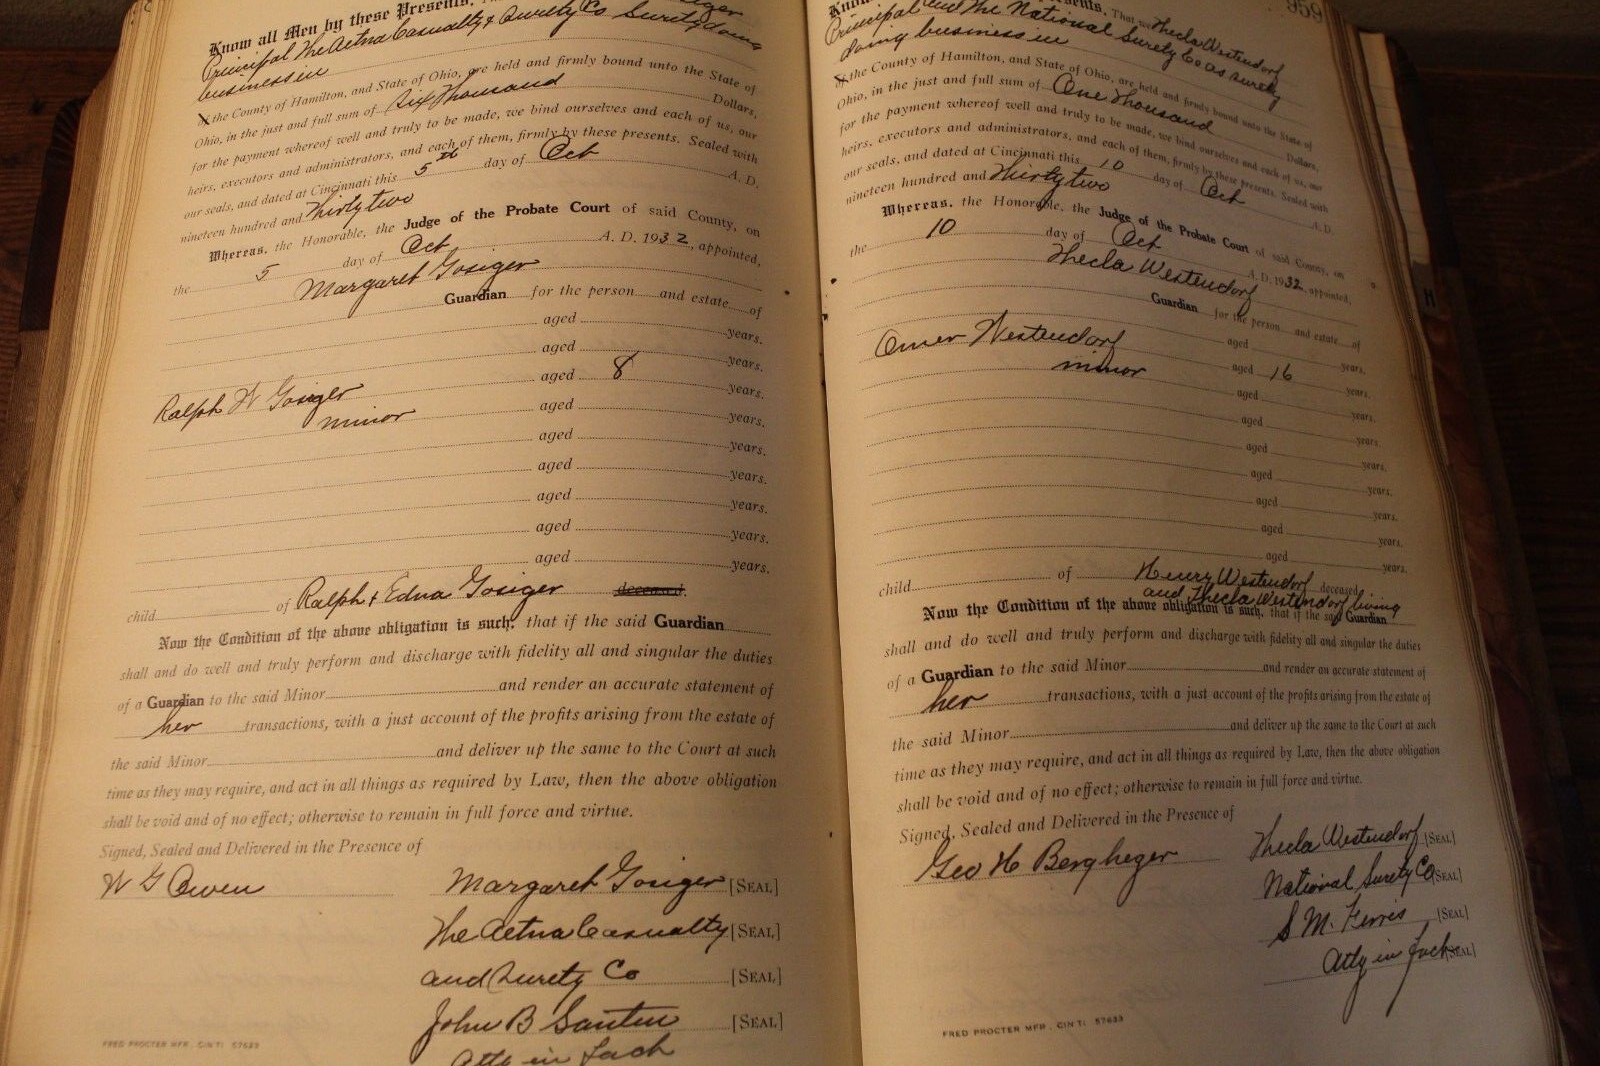 Know all Men by these Presents,
Principal The Aetna Casualty & Surety Co Surety doing
business in
of the County of Hamilton, and State of Ohio, are held and firmly bound unto the State of
Ohio, in the just and full sum of Six Thousand Dollars,
for the payment whereof well and truly to be made, we bind ourselves and each of us, our
heirs, executors and administrators, and each of them, firmly by these presents. Sealed with
our seals, and dated at Cincinnati this 5th day of Oct A. D.
nineteen hundred and Thirty two
Whereas, the Honorable, the Judge of the Probate Court of said County, on
the 5 day of Oct A. D. 1932, appointed,
Margaret Gosiger
Guardian for the person and estate of
aged years.
aged years.
Ralph W Gosiger aged 8 years.
minor aged years.
aged years.
aged years.
aged years.
aged years.
aged years.
child of Ralph & Edna Gosiger deceased.
Now the Condition of the above obligation is such; that if the said Guardian
shall and do well and truly perform and discharge with fidelity all and singular the duties
of a Guardian to the said Minor and render an accurate statement of
her transactions, with a just account of the profits arising from the estate of
the said Minor and deliver up the same to the Court at such
time as they may require, and act in all things as required by Law, then the above obligation
shall be void and of no effect; otherwise to remain in full force and virtue.
Signed, Sealed and Delivered in the Presence of
W G Owen Margaret Gosiger [SEAL]
The Aetna Casualty [SEAL]
and Surety Co [SEAL]
John B [SEAL]
Atty in Fach
FRED PROCTER MFR. CIN'TI 57633
959
That we Thecla Westendorf
Principal and The National Surety Co as surety
doing business in
of the County of Hamilton, and State of Ohio, are held and firmly bound unto the State of
Ohio, in the just and full sum of One Thousand Dollars,
for the payment whereof well and truly to be made, we bind ourselves and each of us, our
heirs, executors and administrators, and each of them, firmly by these presents. Sealed with
our seals, and dated at Cincinnati this 10 day of Oct A. D.
nineteen hundred and Thirty two
Whereas, the Honorable, the Judge of the Probate Court of said County, on
the 10 day of Oct A. D. 1932, appointed,
Thecla Westendorf
Guardian for the person and estate of
aged years.
Omer Westendorf aged 16 years.
minor aged years.
aged years.
aged years.
aged years.
aged years.
aged years.
aged years.
child of Henry Westendorf deceased
and Thecla Westendorf living
Now the Condition of the above obligation is such, that if the said Guardian
shall and do well and truly perform and discharge with fidelity all and singular the duties
of a Guardian to the said Minor and render an accurate statement of
her transactions, with a just account of the profits arising from the estate of
the said Minor and deliver up the same to the Court at such
time as they may require, and act in all things as required by Law, then the above obligation
shall be void and of no effect; otherwise to remain in full force and virtue.
Signed, Sealed and Delivered in the Presence of
Geo H Bergheger Thecla Westendorf [SEAL]
National Surety Co [SEAL]
S M. Ferris [SEAL]
Atty in Fach [SEAL]
FRED PROCTER MFR. CIN'TI 57633